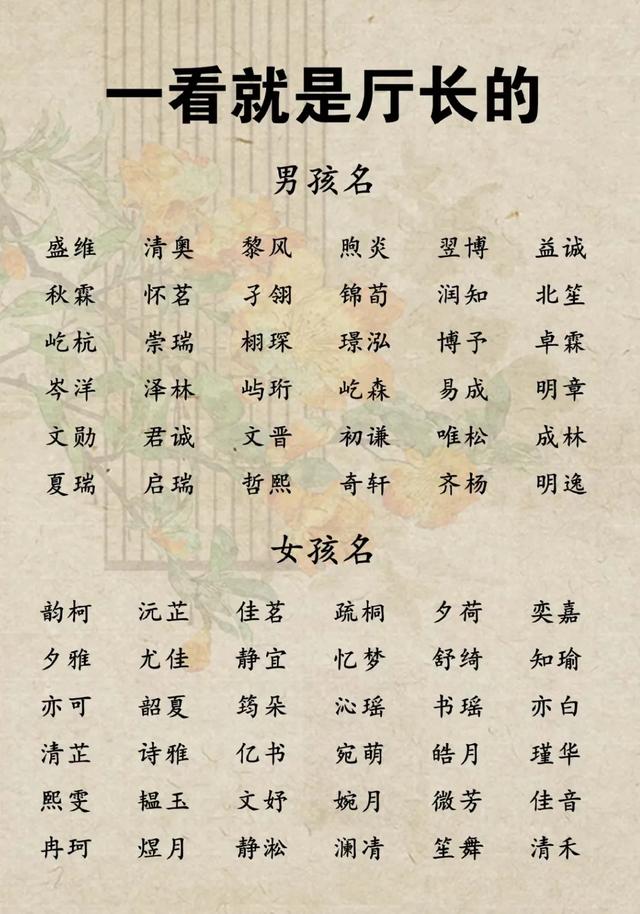 一看就是厅长的
男孩名
盛维 清奥 黎风 煦炎 翌博 益诚
秋霖 怀茗 孑翎 锦荀 润知 北笙
屹杭 崇瑞 栩琛 璟泓 博予 卓霖
岑洋 泽林 屿珩 屹森 易成 明章
文勋 君诚 文晋 初谦 唯松 成林
夏瑞 启瑞 哲熙 奇轩 齐杨 明逸
女孩名
韵柯 沅芷 佳茗 疏桐 夕荷 奕嘉
夕雅 尤佳 静宜 忆梦 舒绮 知瑜
亦可 韶夏 筠朵 沁瑶 书瑶 亦白
清芷 诗雅 亿书 宛萌 皓月 瑾华
熙雯 韫玉 文妤 婉月 微芳 佳音
冉珂 煜月 静淞 澜凊 笙舞 清禾